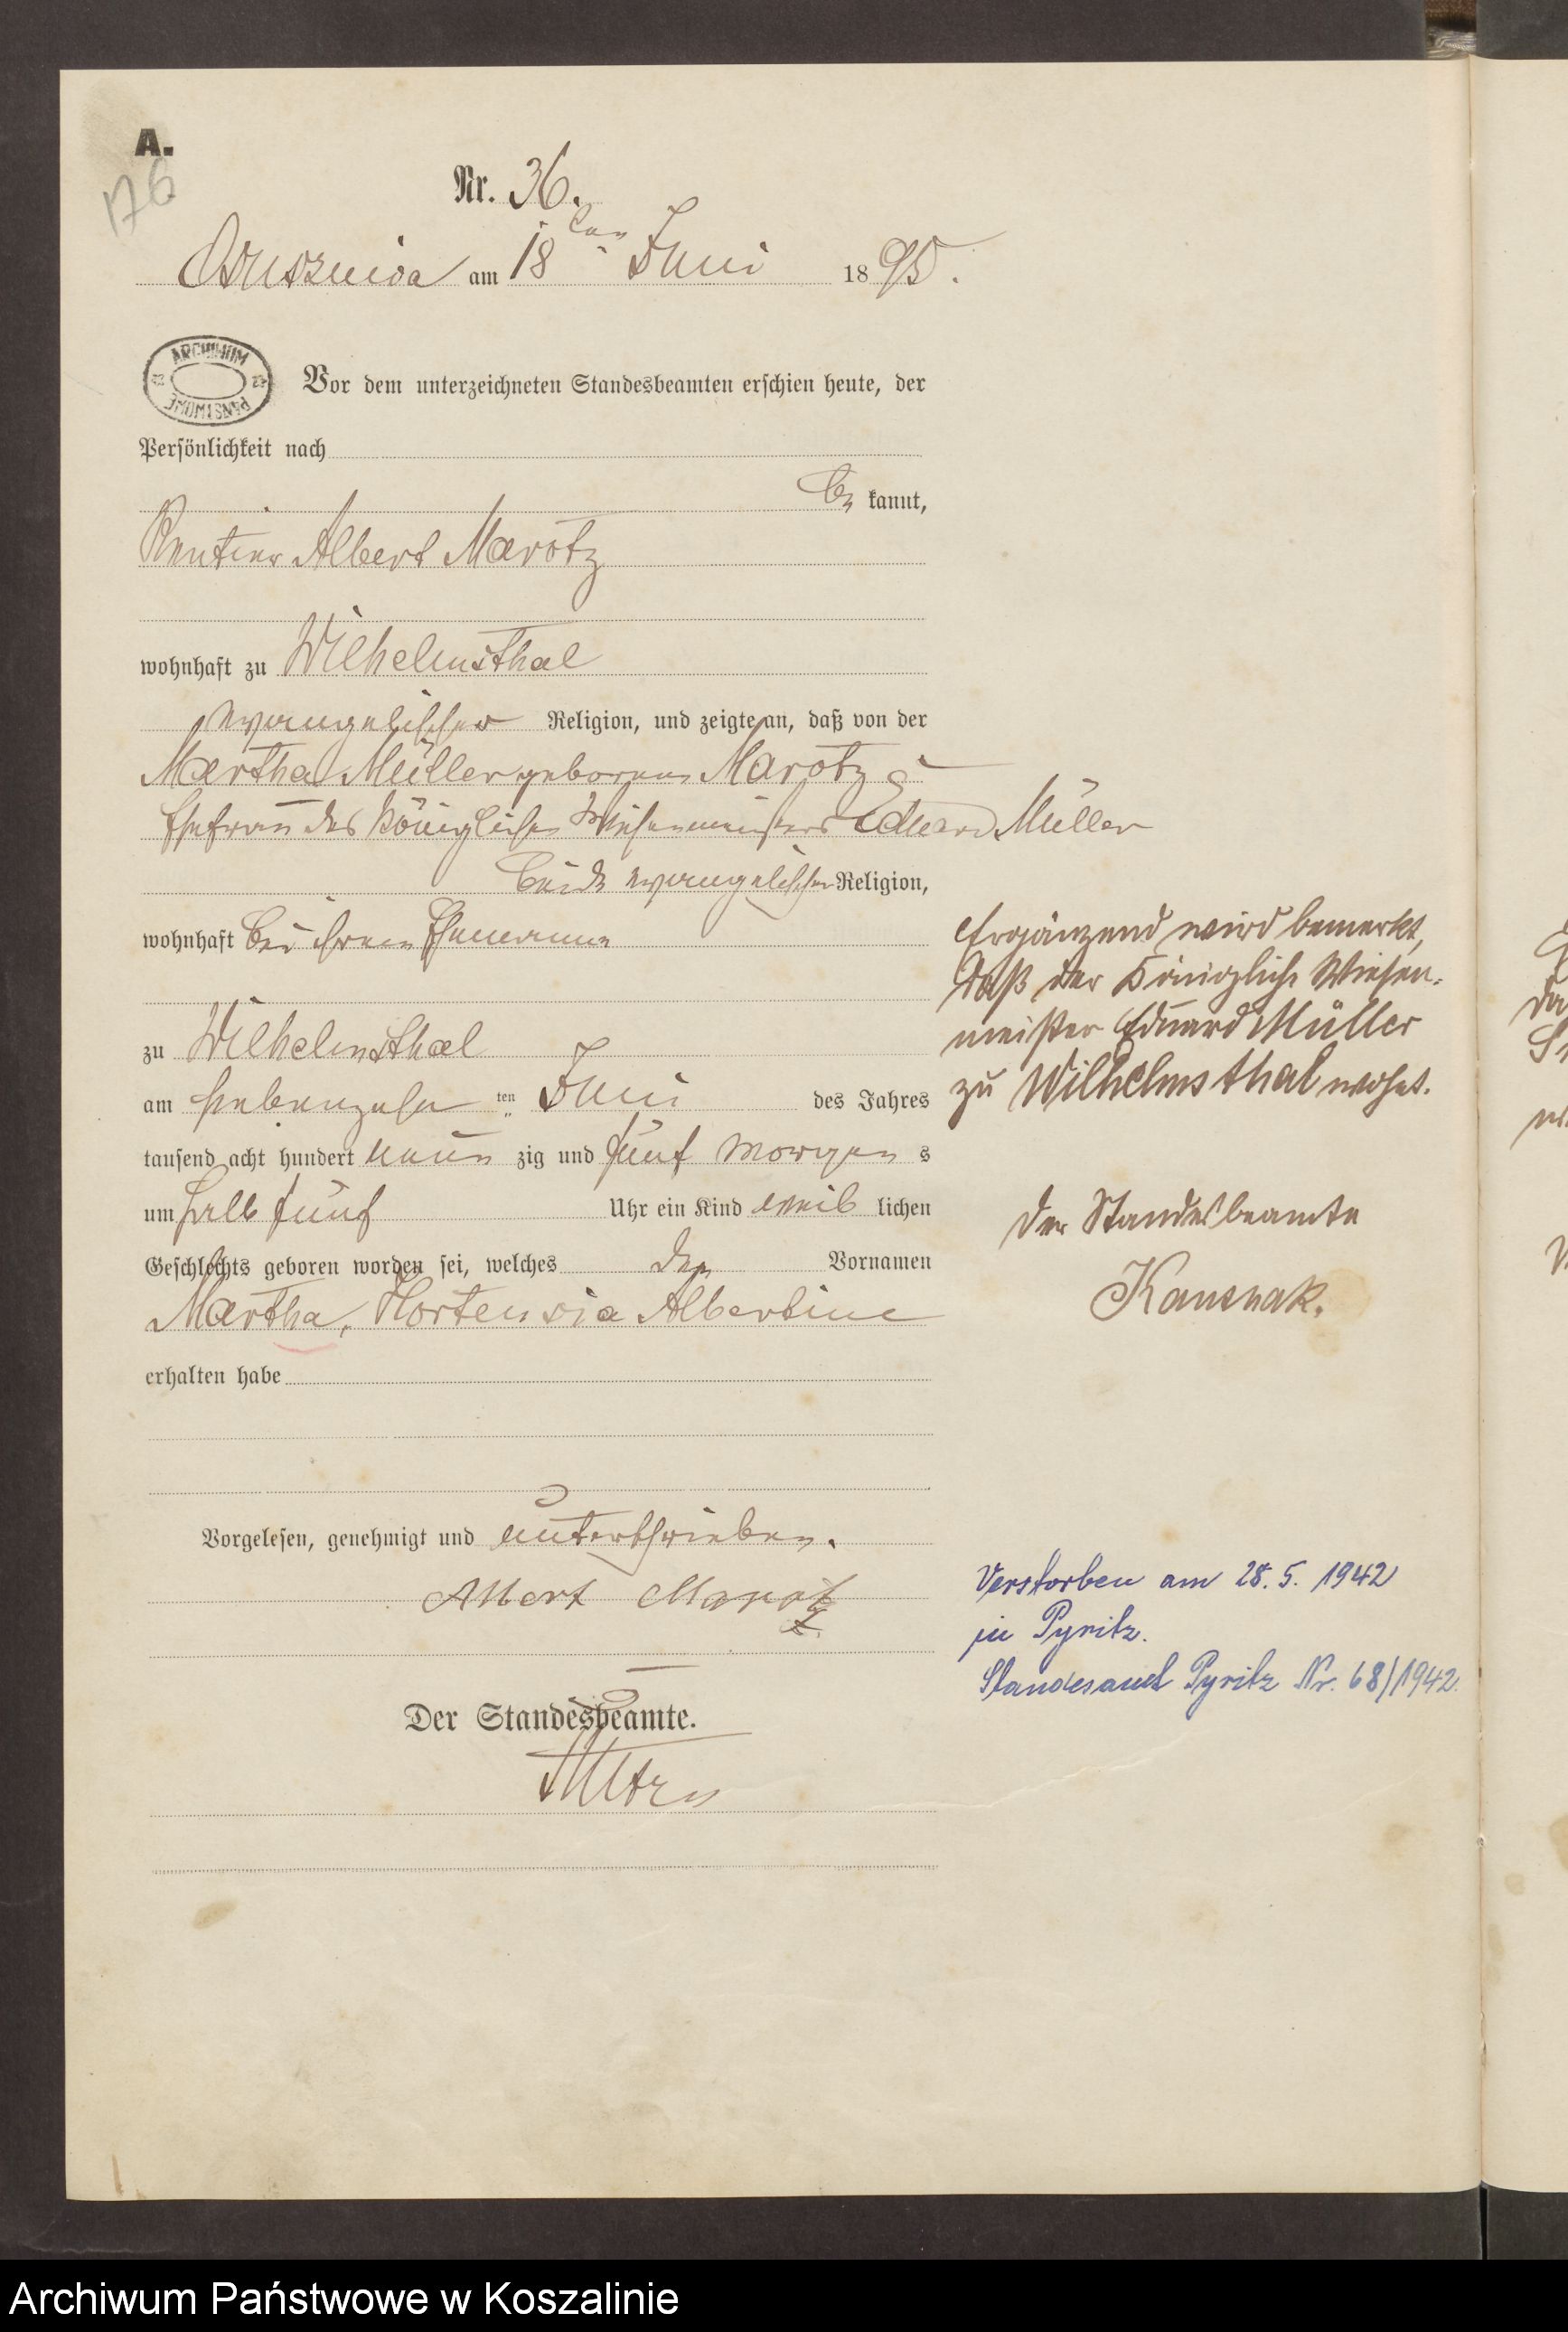 A.
176
Nr. 36.
am 18ten Juni 1895.
ARCHIWUM PAŃSTWOWE
Vor dem unterzeichneten Standesbeamten erschien heute, der
Persönlichkeit nach
be kannt,
Rentier Albert Marotz
wohnhaft zu Wilhelmsthal
evangelischer Religion, und zeigte an, daß von der
Martha Müller geborenen Marotz
Ehefrau des Königlichen Wiesenmeisters Eduard Müller
beide evangelischer Religion,
wohnhaft bei ihrem Ehemanne
zu Wilhelmsthal
am siebenzehnten Juni des Jahres
tausend acht hundert neun zig und fünf Morgens
um halb fünf Uhr ein Kind weib lichen
Geschlechts geboren worden sei, welches den Vornamen
Martha, Hortensia Albertine
erhalten habe
Vorgelesen, genehmigt und unterschrieben.
Albert Marotz
Der Standesbeamte.
Ergänzend wird bemerkt,
daß der Königliche Wiesen-
meister Eduard Müller
zu Wilhelmsthal wohnt.
Der Standesbeamte
Verstorben am 28. 5. 1942
in Pyritz.
Standesamt Pyritz Nr. 68/1942.
Archiwum Państwowe w Koszalinie